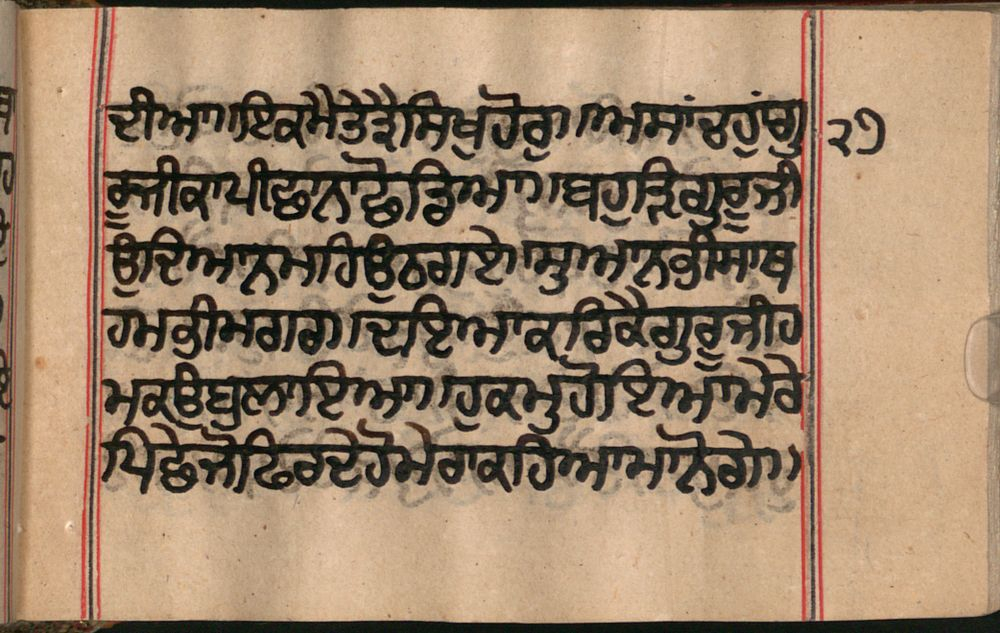 ਦੀਆ॥ਇਕਮੈਤੇਤ੍ਰੈਸਿਖਹੋਰੁ॥ਅਸਾਂਚਹੁੰਗੁ
ਰੂਜੀਕਾਪੀਛਾਨਾਛੋਡਿਆ॥ਬਹੁੜਿਗੁਰੂਜੀ
ਉਦਿਆਨਮਹਿਉਠਗਏ॥ਸੁਆਨਭੀਸਾਥ
ਹਮਭੀਮਗਰ॥ਦਇਆਕਰਿਕੈਗੁਰੂਜੀਹ
ਮਕਉਬੁਲਾਇਆ॥ਹੁਕਮੁਹੋਇਆਮੇਰੇ
ਪਿਛੇਜੋਫਿਰਦੇਹੋਮੇਰਾਕਹਿਆਮਾਨੋਗੇ॥
੨੭